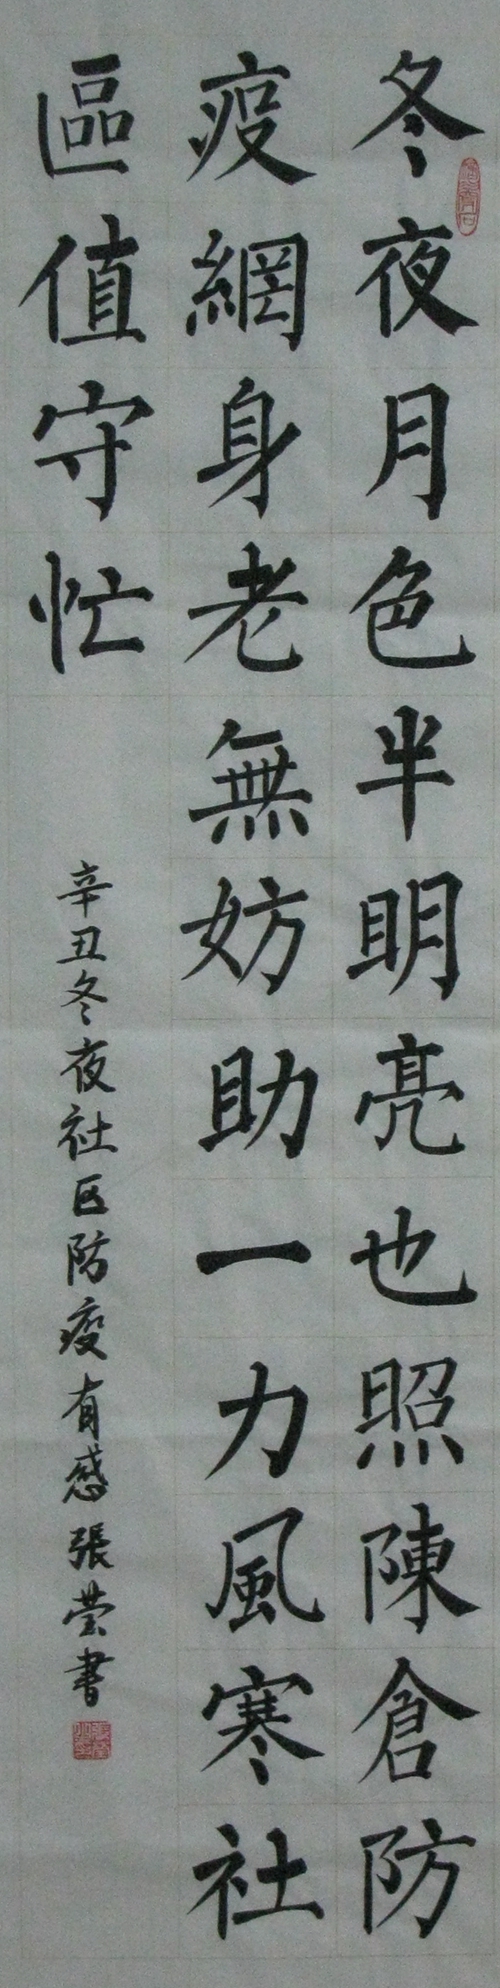 冬夜月色半明亮也照陳倉防
疫網身老無妨助一力風寒社
區值守忙
辛丑冬夜社区防疫有感張莹書